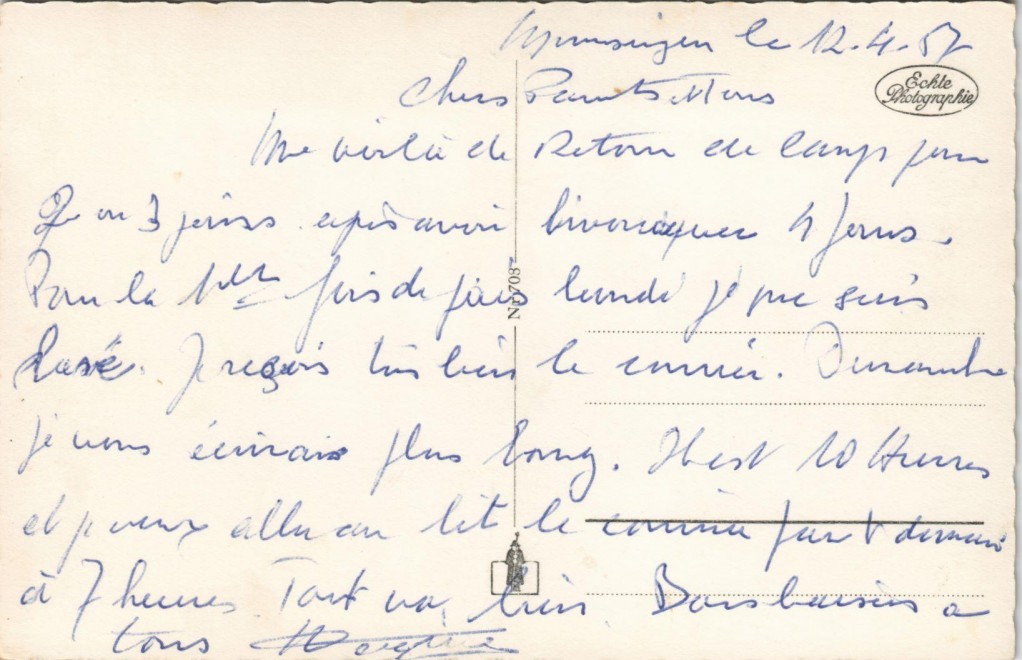 Munsingen le 12.4.57
Eckle
Photographie
Chers Parents et Tous
Me voilà de Retour de camp pour
3 jours après avoir bivouaquer 4 jours.
Pour la 1ère fois depuis lundi je me suis
Rasé. Je reçois très bien le courrier. Dimanche
je vous écrirais plus long. Il est 10 Heures
et je veux aller au lit le courrier part demain
à 7 heures Tout va bien Bons baisers a
tous
Nr. 708